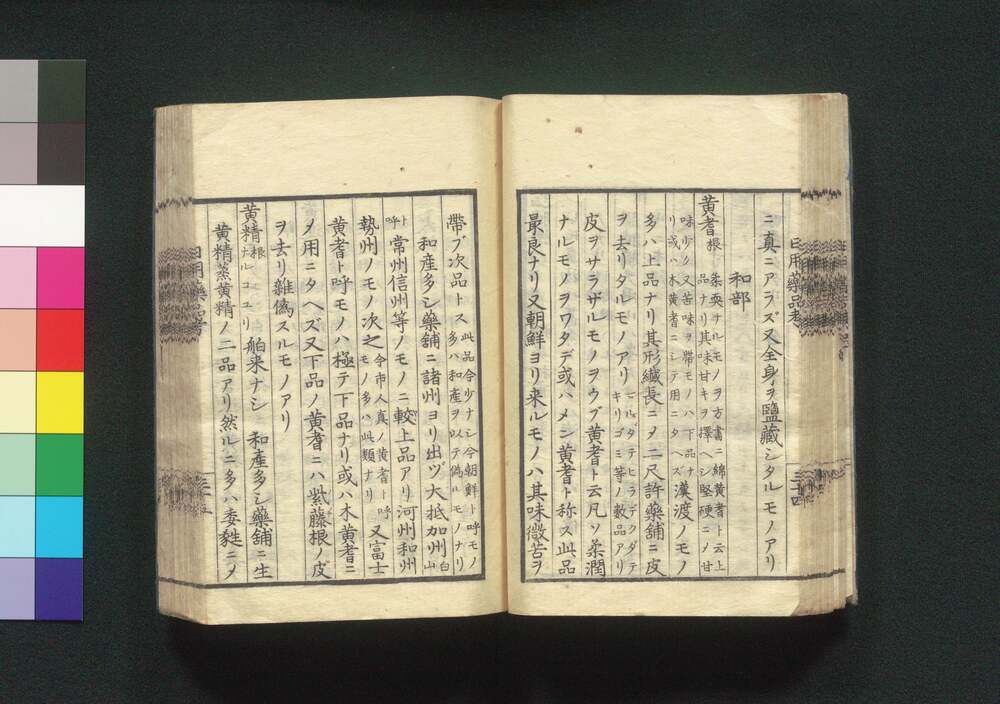 ニ真ニアラズ又全身ヲ鹽藏シタルモノアリ
和部
黄耆根
柔耎ナルモノヲ方書ニ綿黄耆ト云上
品ナリ其味甘キヲ擇ヘシ堅硬ニノ甘
味少ク又苦味ヲ帶モノハ下品ナ
リ或ハ木黄耆ニシテ用ニタヘズ
漢渡ノモノ
多ハ上品ナリ其形纎長ニノ二尺許藥舗ニ皮
ヲ去リタルモノアリ
キリゴミ等ノ數品アリ
皮ヲサラザルモノヲウブ黄耆ト云凡ソ柔潤
ナルモノヲワタデ或ハメン黄耆ト称ス此品
最良ナリ又朝鮮ヨリ来ルモノハ其味微苦ヲ
日用藥品考
三十四
帶ブ次品トス
此品今少ナシ今朝鮮ト呼モノ
多ハ和産ヲ以テ偽ルモノナリ
和産多シ藥舗ニ諸州ヨリ出ヅ大抵加州
白
山
ト
呼
常州信州等ノモノニ較上品アリ河州和州
勢州ノモノ次之
今市人真ノ黄耆ト呼
モノ多ハ此類ナリ
又富士
黄耆ト呼モノハ極テ下品ナリ或ハ木黄耆ニ
ノ用ニタヘズ又下品ノ黄耆ニハ紫藤根ノ皮
ヲ去リ雜偽スルモノアリ
黄精根
舶来ナシ 和産多シ藥舗ニ生
黄精蒸黄精ノ二品アリ然ルニ多ハ委甤ニノ